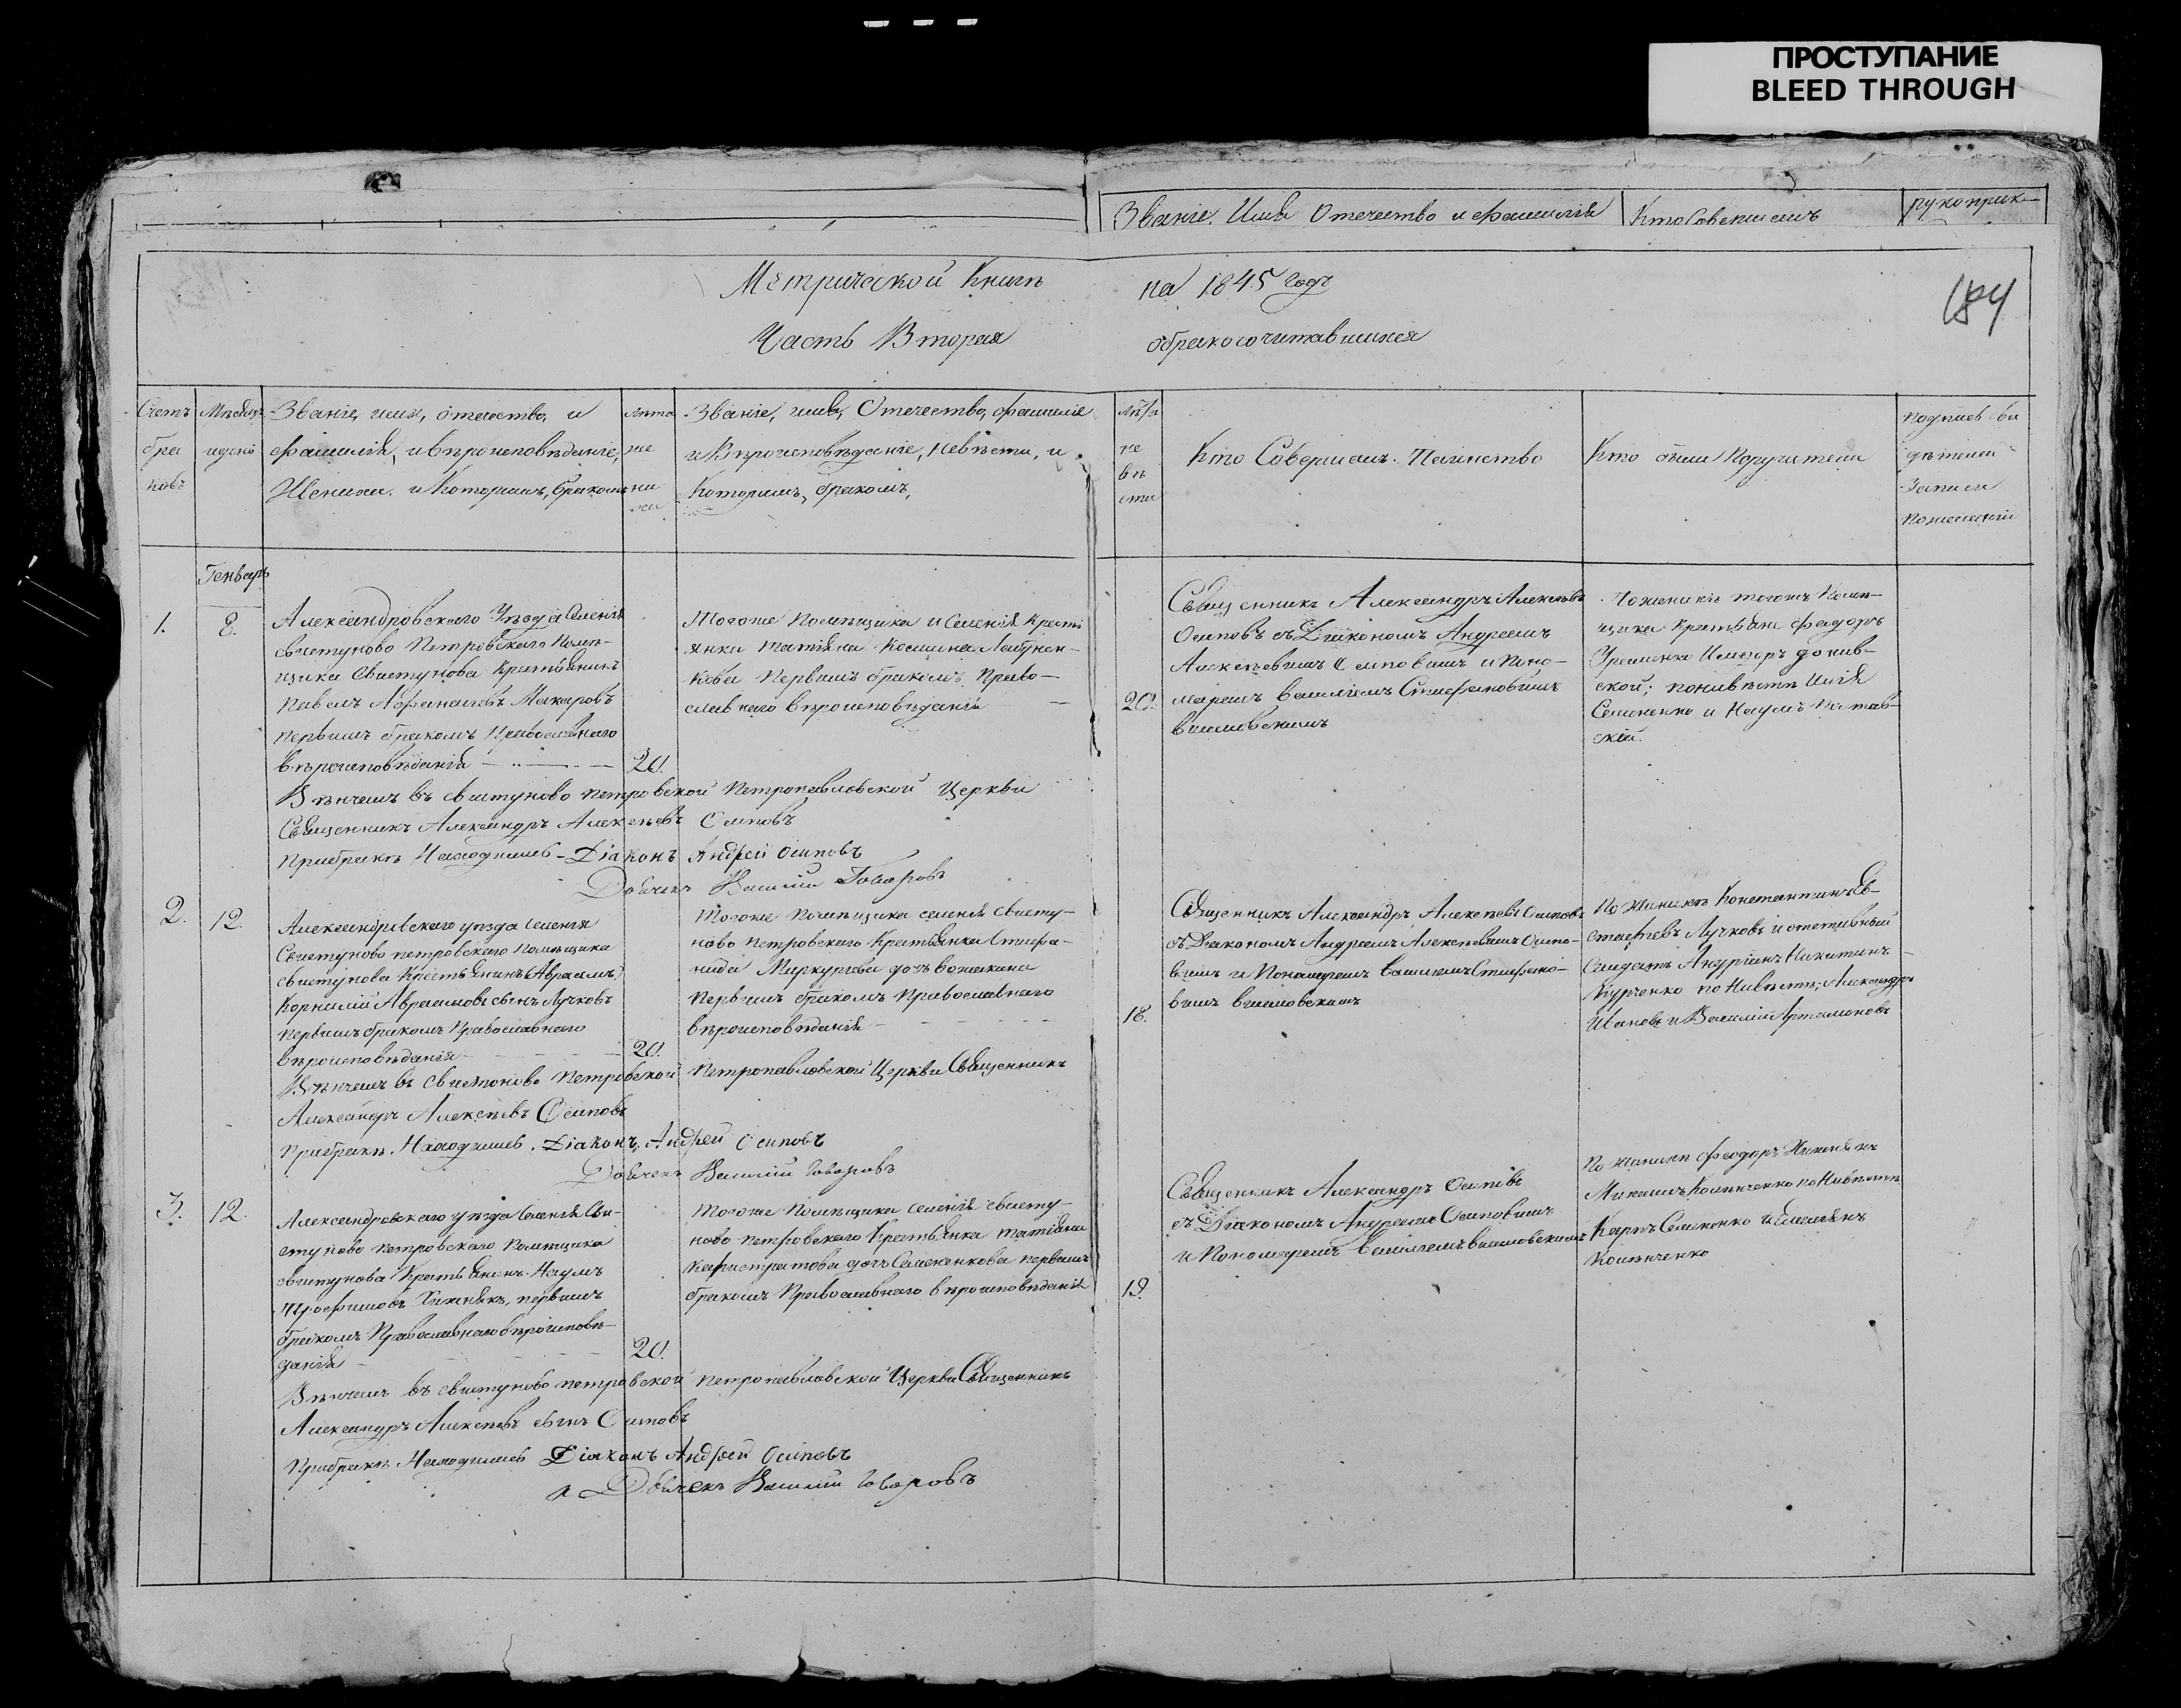 ПРОСТУПАНИЕ
BLEED THROUGH
Званіе, Имя Отечество и фамилія
Кто Совершилъ
рукоприк-
Метрической Книги на 1845 годъ
184
Часть Вторая о бракосочитавшихся
Счетъ
бра
ковъ
Мѣсяцъ
и дни
Званіе, имя, отечество, и
фамилія, и вѣроисповѣданіе,
Жениха. и Которымъ, бракомъ
лѣта
же
ни
ха
Званіе, имя, Отечество, фамиліе
и Вѣроисповѣданіе, Невѣсты, и
Которымъ, бракомъ,
лѣта
не
вѣ
сты
Кто Совершалъ Таинство
Кто были Поручители
подпись сви
дѣтелей
Записи
по желанію
Генварь
1.
8.
Александровского Уѣзда Селенія
Свистуново Петровского Помѣ-
щика Свистунова Крестьянинъ
Павелъ Афанасіевъ Макаровъ
первымъ бракомъ Православного
вѣроисповѣданія
20.
Тогоже Помѣщика и Селенія Крестя
янка Татіяна Космина Лабунен-
кова Первымъ бракомъ Право-
славного вѣроисповѣданія
20.
Священникъ Александръ Алексѣевъ
Осиповъ съ Діякономъ Андреемъ
Алексѣевимъ Осиповимъ и Поно-
маремъ Василіемъ Стефановимъ
По женихѣ тогожъ Помѣ-
щика Крестьяне Федоръ
по невѣстѣ Илія
Семененко и Наумъ Полтав-
скій.
Вѣнчалъ въ Свистуново Петровской Петропавловской Церкви
Священникъ Александръ Алексѣевъ Осиповъ
При бракѣ Находились - Діаконъ Андрей Осиповъ
Дьячекъ Василій Говоровъ
2.
12.
Александровского уѣзда селенія
Свистуново петровского помѣщика
Свистунова Крестьянинъ
Корнилій Аврамовъ сынъ Лучковъ
первымъ бракомъ Православного
вѣроисповѣданія
20.
Тогоже Помѣщика селенія Свисту-
ново петровского Крестьянка Стефа-
нида Меркуріева дочь
Первымъ бракомъ Православного
вѣроисповѣданія
18.
Священникъ Александръ Алексѣевъ Осиповъ
съ Діякономъ Андреемъ Алексѣевимъ Осипо-
вимъ и Пономаремъ Василіемъ Стефано-
вимъ
По Женихѣ Константинъ Ев-
стафіевъ Лучковъ и отставный
Салдатъ Андріянъ Никитинъ
Курченко по Нивѣстѣ; Александръ
Ивановъ и Василій Артамоновъ
Вѣнчалъ въ Свистоново Петровской Петропавловской Церкви Священникъ
Александръ Алексѣевъ Осиповъ
При бракѣ Находились. Діаконъ, Андрей Осиповъ
Дьячекъ Василій Говоровъ
3.
12.
Александровского уѣзда Селенія Сви-
стуново петровского Помѣщика
Свистунова Крестьянинъ Наумъ
Трофимовъ Хижнякъ, первымъ
бракомъ Православного вѣроисповѣ-
данія
20.
Тогоже Помѣщика селенія Свисту-
ново петровского Крестьянка татіяна
Калистратова дочь Семененкова первымъ
бракомъ Православного вѣроисповѣданія
19.
Священникъ Александръ Осиповъ
съ Діякономъ Андреемъ Осиповимъ
и Пономаремъ Василіемъ
По женихѣ Феодоръ Хижнякъ
Михаилъ Колѣнченко по Нивѣстѣ
Карпъ Семененко и Емеліянъ
Колѣнченко
Вѣнчалъ въ Свистуново петровской петропавловской Церкви Священникъ
Александръ Алексѣевъ сынъ Осиповъ
При бракѣ Находились Діаконъ Андрей Осиповъ
Дьячекъ Василій Говоровъ